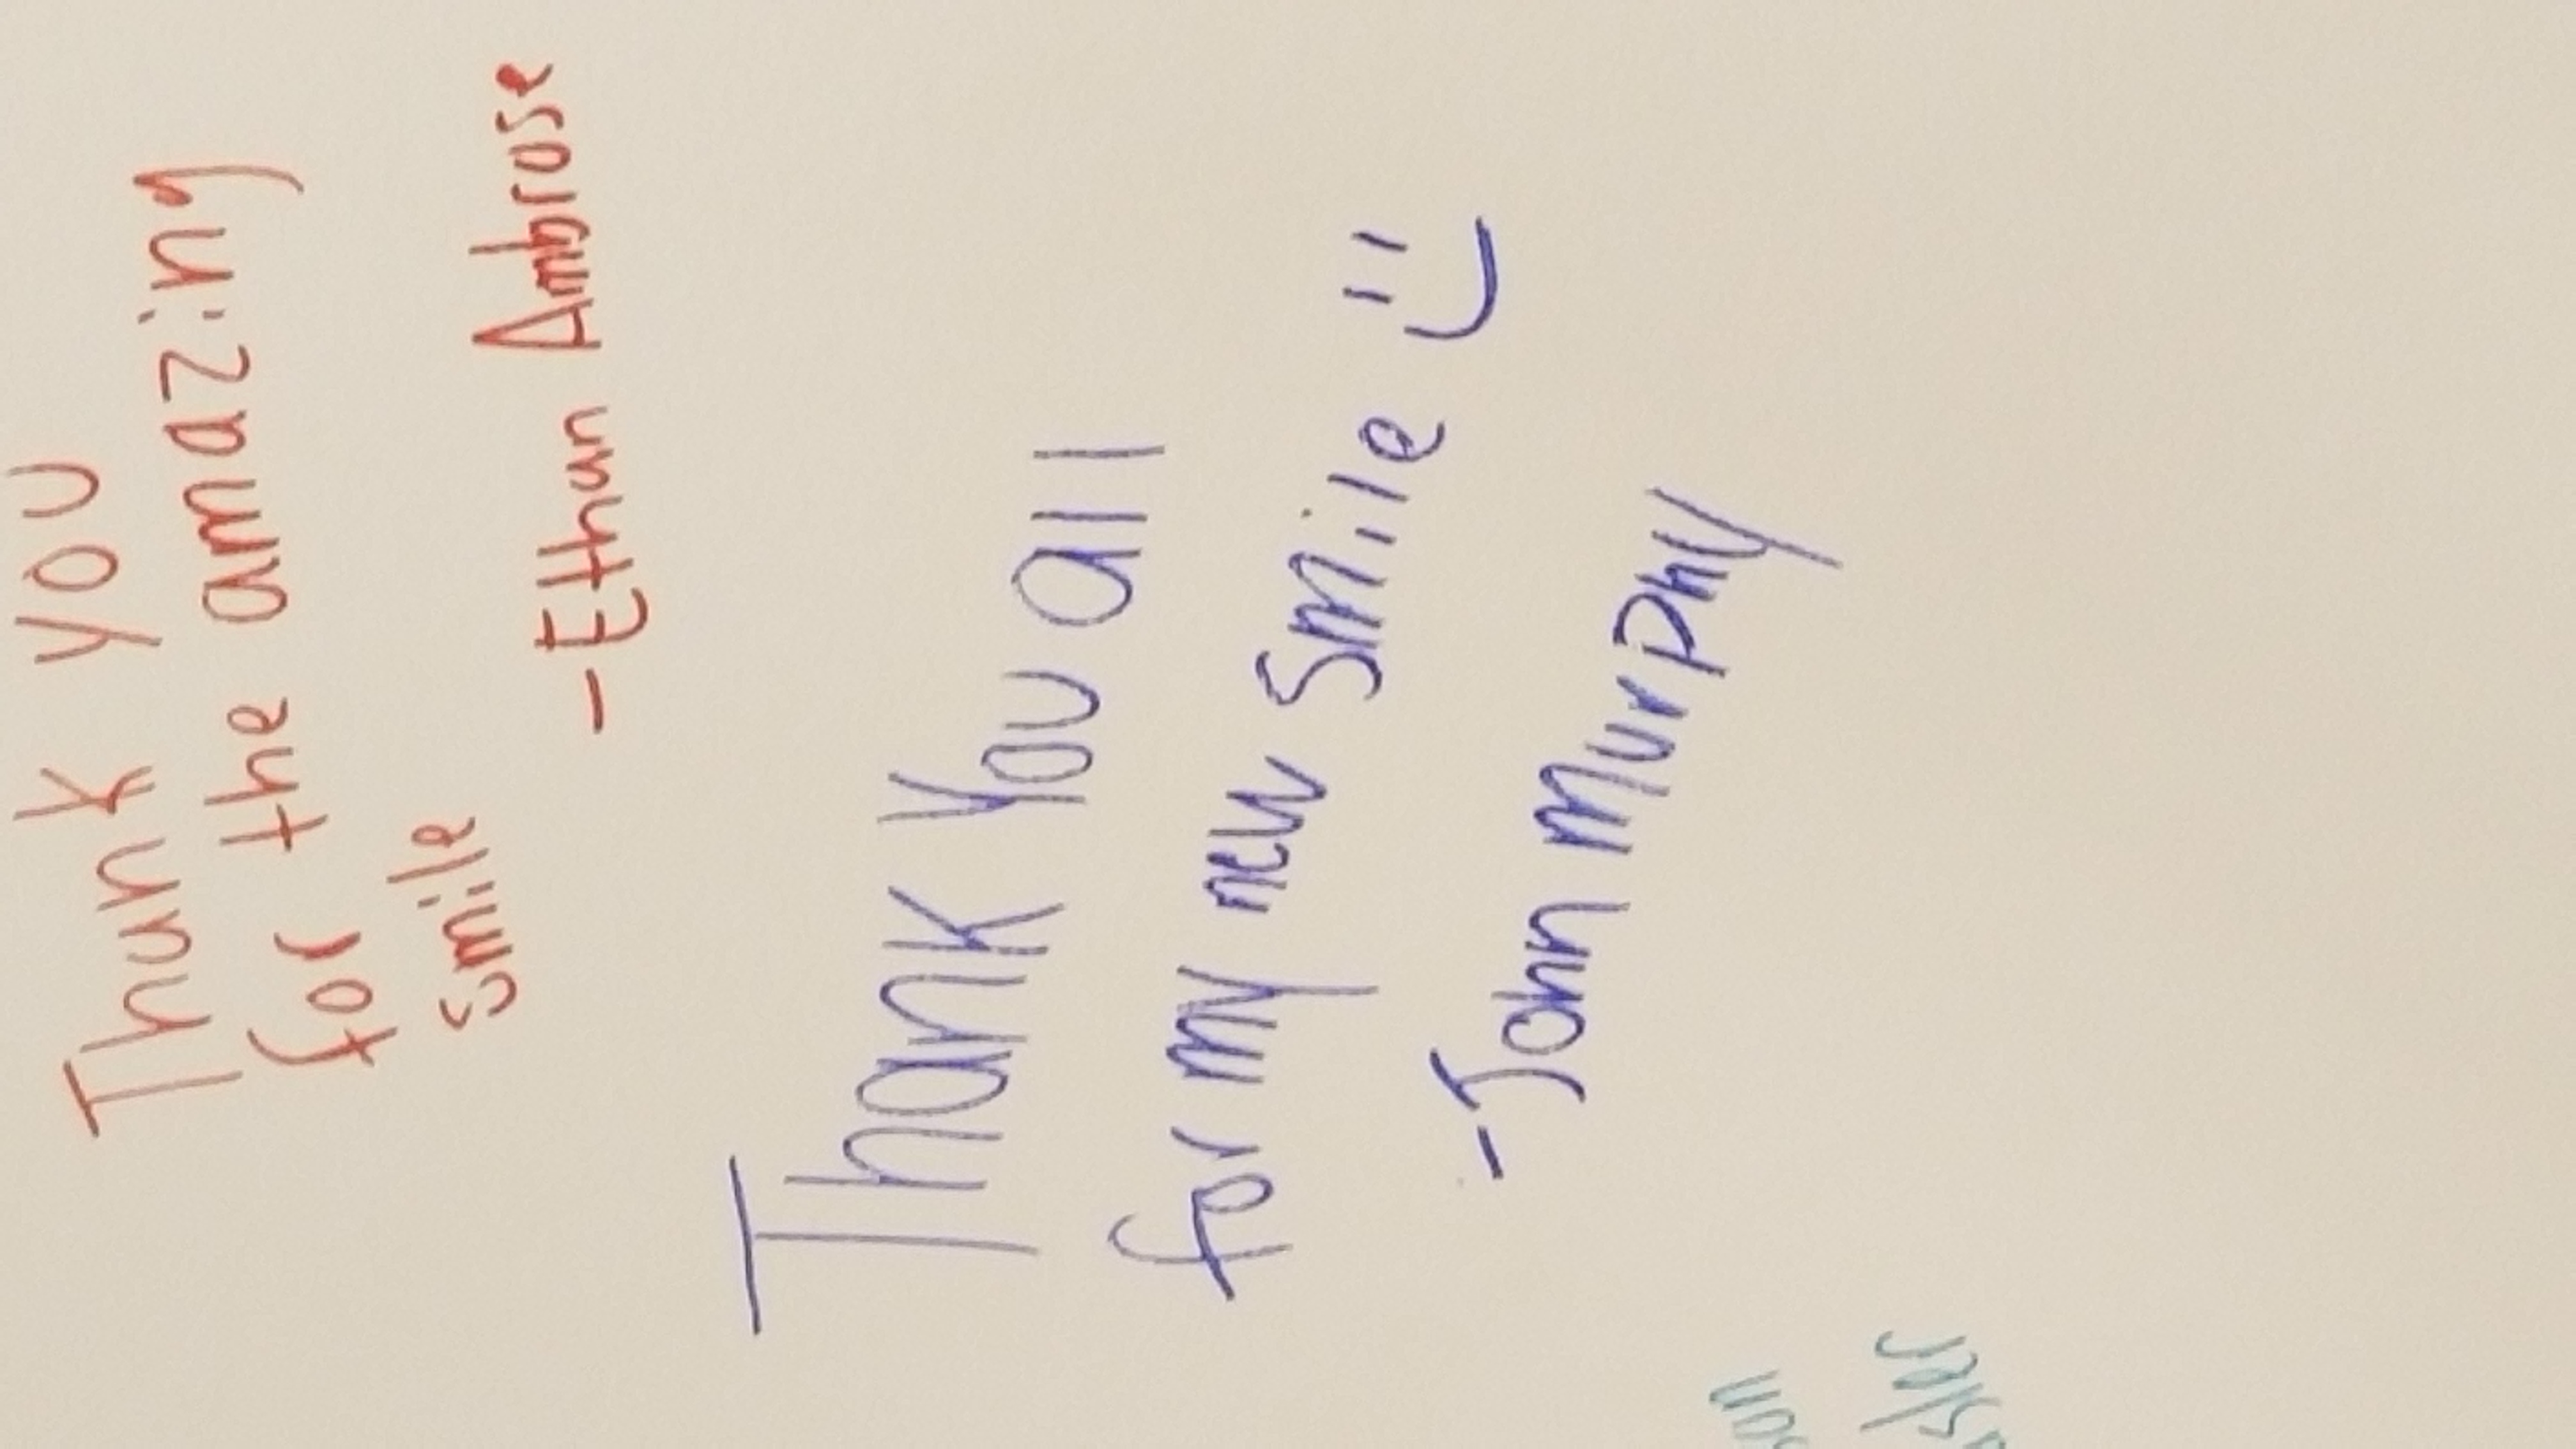 Thank you
for the amazing
smile
-Ethan Ambrose
Thank You all
for my new Smile :)
-John Murphy